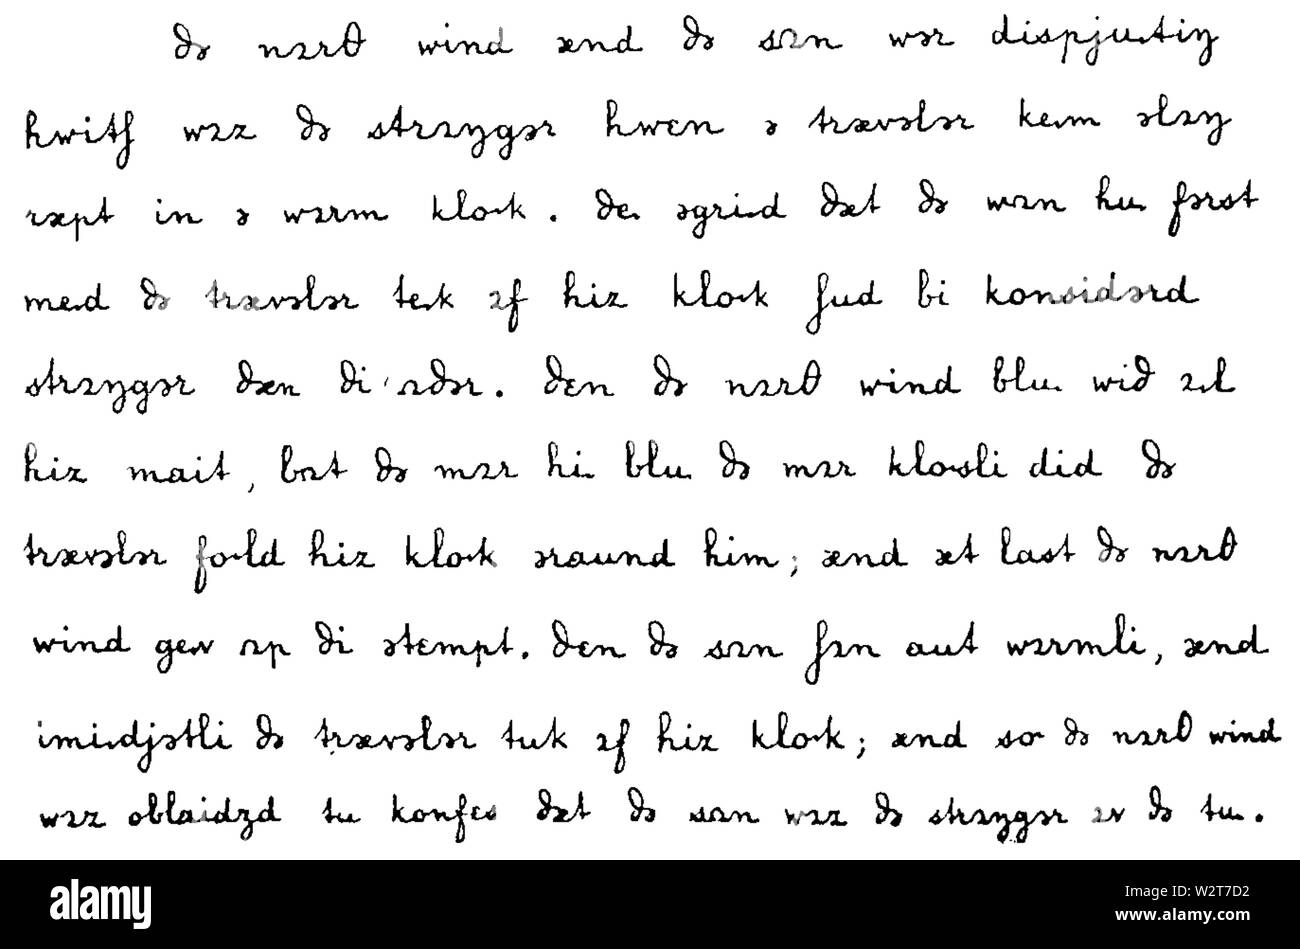 ðə nɔrθ wind ænd ðə sʌn wər dispjuˑtiŋ
hwitʃ wɔz ðə strɔŋgər hwɛn ə trævələr keˑm əlɔŋ
ræpt in ə wɔrm kloˑk. ðeˑ əgriˑd ðæt ðə wʌn huˑ fərst
meˑd ðə trævələr teˑk ɔf hiz kloˑk ʃud bi konsidərd
strɔŋgər ðæn ði ʌðər. ðɛn ðə nɔrθ wind bluˑ wið ɔˑl
hiz mait, bʌt ðə mɔr hiˑ bluˑ ðə mɔr kloˑsli did ðə
trævələr foˑld hiz kloˑk əraund him; ænd æt last ðə nɔrθ
wind geˑv ʌp ði ətɛmpt. ðɛn ðə sʌn ʃɔn aut wɔrmli, ænd
imiˑdjətli ðə trævələr tuk ɔf hiz kloˑk; ænd soˑ ðə nɔrθ wind
wɔz oblaidʒd tu konfɛs ðæt ðə sʌn wɔz ðə strɔŋgər ɔv ðə tuˑ.
alamy
Image ID: W2T7D2
www.alamy.com